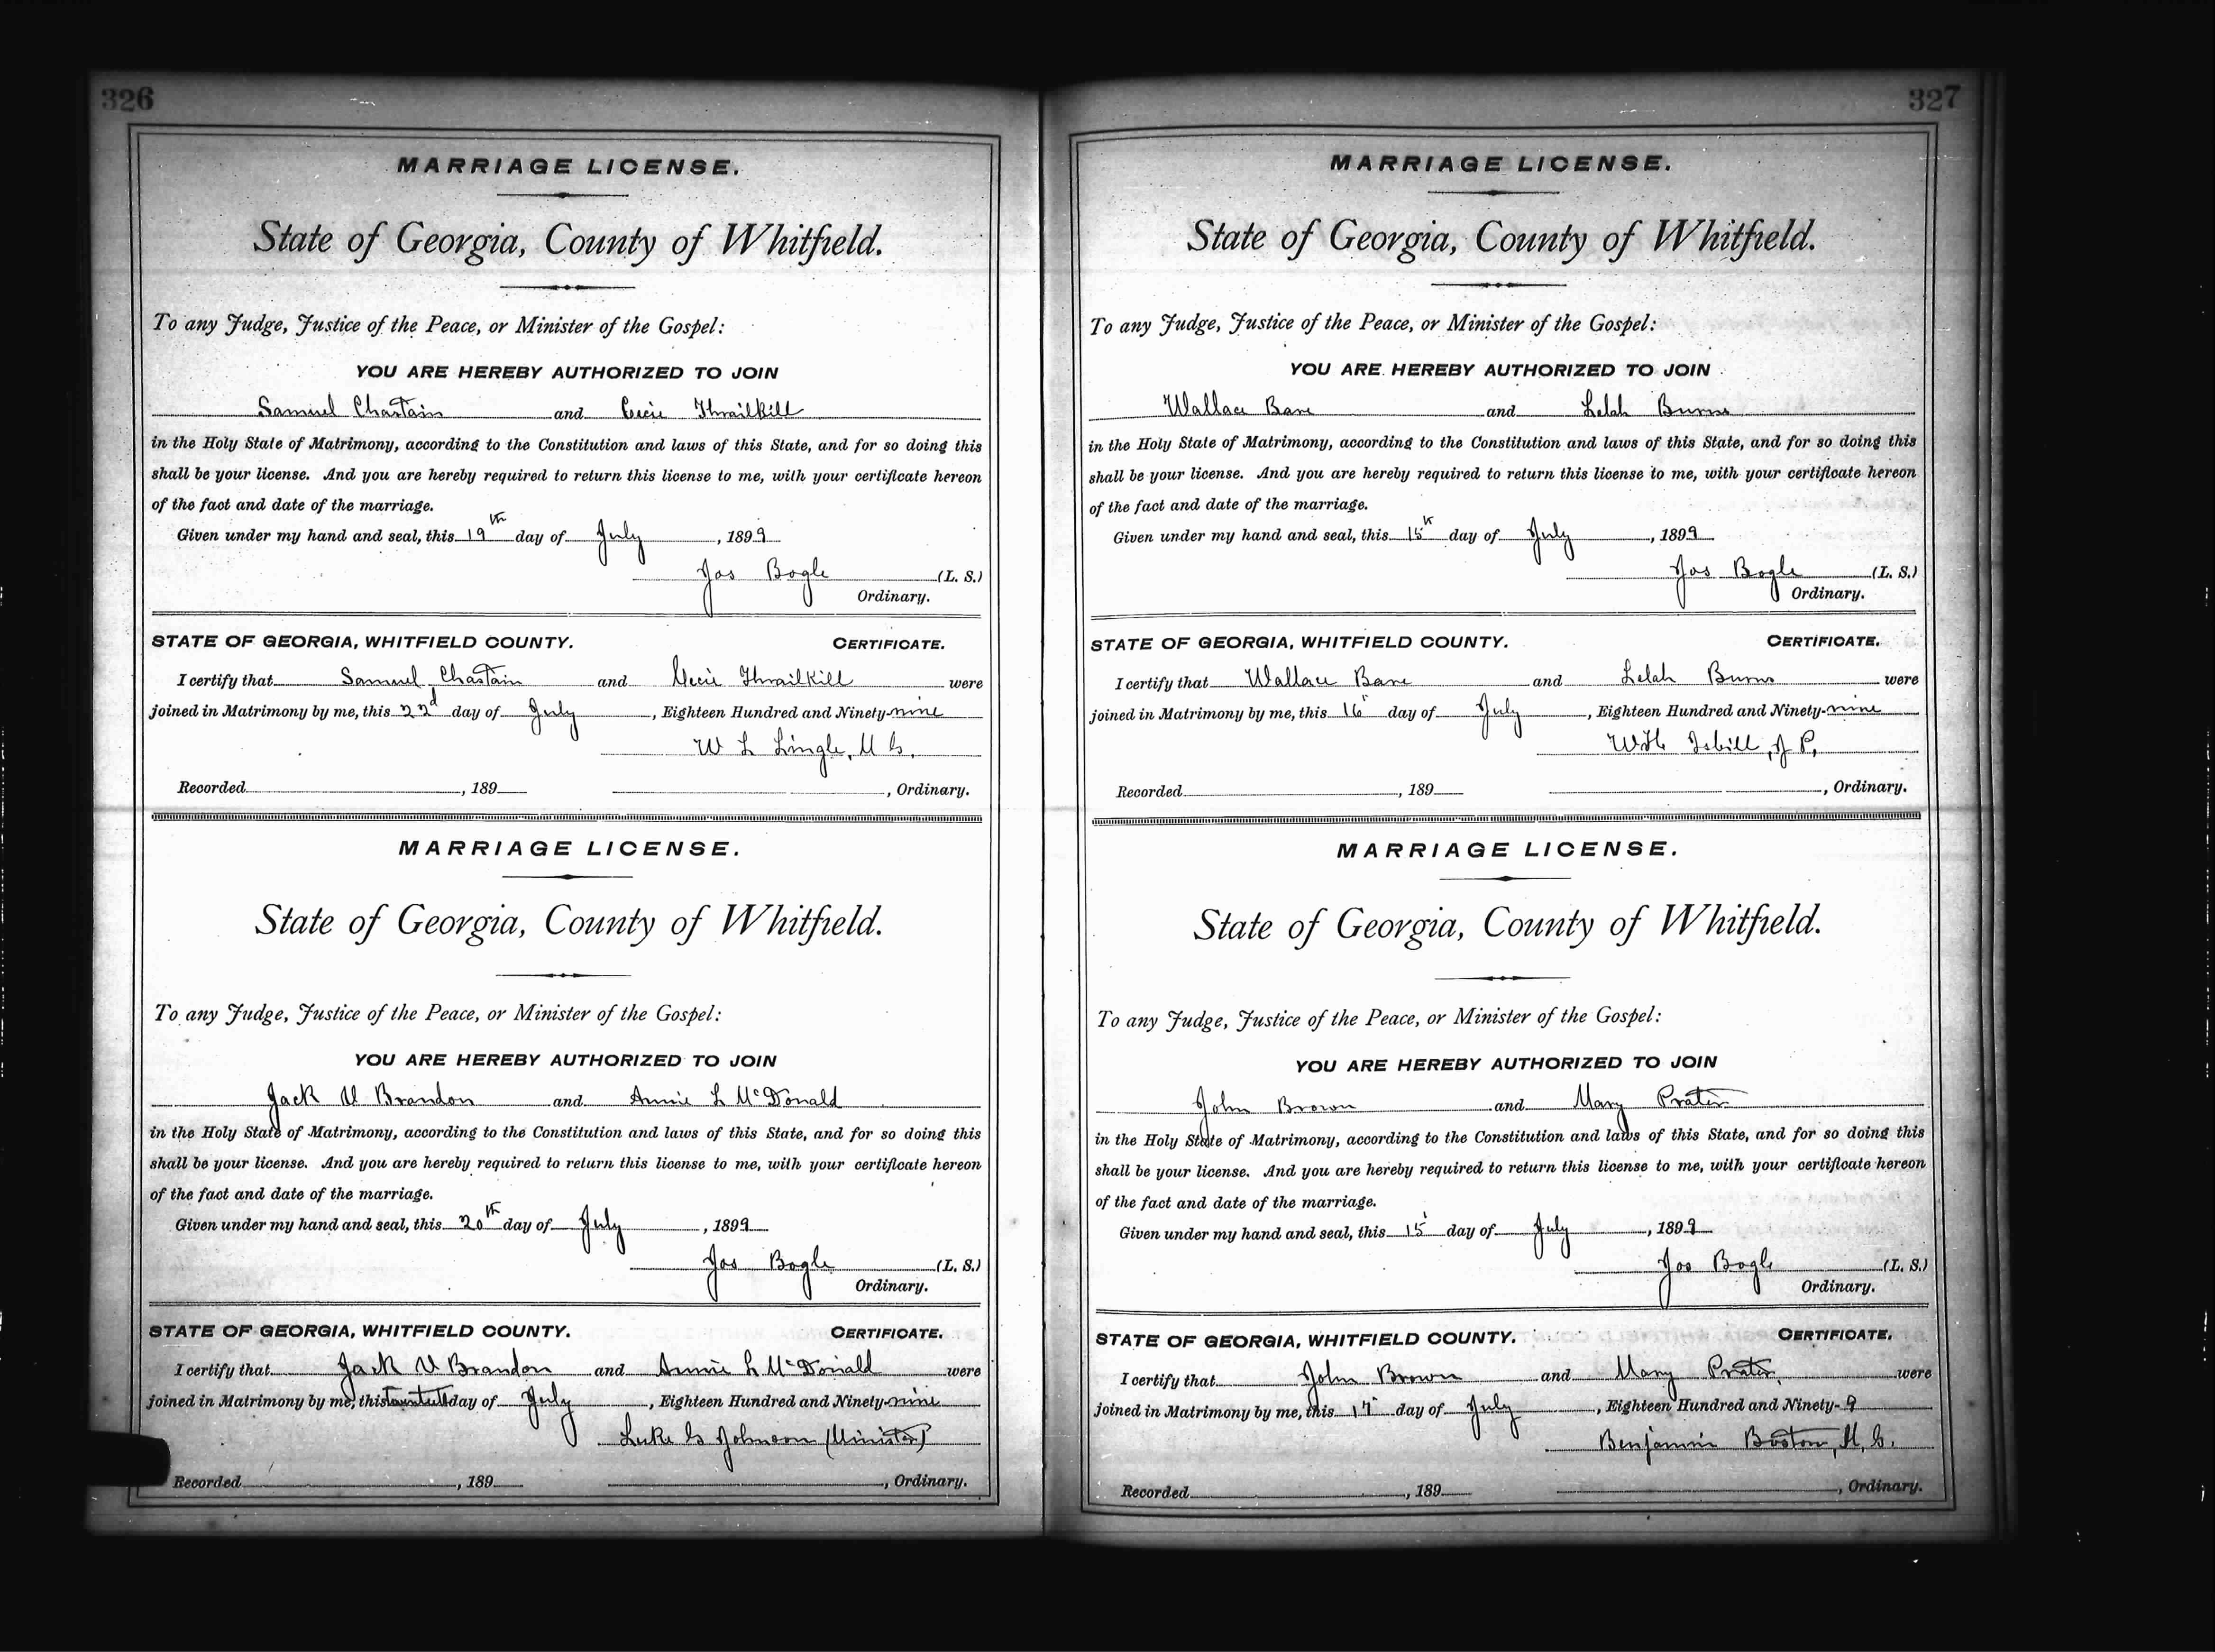 326
MARRIAGE LICENSE.
State of Georgia, County of Whitfield.
To any Judge, Justice of the Peace, or Minister of the Gospel:
YOU ARE HEREBY AUTHORIZED TO JOIN
Samuel Chastain and Thrailkill
in the Holy State of Matrimony, according to the Constitution and laws of this State, and for so doing this
shall be your license. And you are hereby required to return this license to me, with your certificate hereon
of the fact and date of the marriage.
Given under my hand and seal, this 19th day of July, 1899
Jos Bogle (L. S.)
Ordinary.
STATE OF GEORGIA, WHITFIELD COUNTY. CERTIFICATE.
I certify that Samuel Chastain and Thrailkill were
joined in Matrimony by me, this 22d day of July, Eighteen Hundred and Ninety-nine
W L Lingle, M G.
Recorded , 189 , Ordinary.
MARRIAGE LICENSE.
State of Georgia, County of Whitfield.
To any Judge, Justice of the Peace, or Minister of the Gospel:
YOU ARE HEREBY AUTHORIZED TO JOIN
Jack Brandon and Annie L McDonald
in the Holy State of Matrimony, according to the Constitution and laws of this State, and for so doing this
shall be your license. And you are hereby required to return this license to me, with your certificate hereon
of the fact and date of the marriage.
Given under my hand and seal, this 20th day of July, 1899
Jos Bogle (L. S.)
Ordinary.
STATE OF GEORGIA, WHITFIELD COUNTY. CERTIFICATE.
I certify that Jack Brandon and Annie L McDonald were
joined in Matrimony by me, this day of July, Eighteen Hundred and Ninety-nine
Luke G Johnson (Minister)
Recorded , 189 , Ordinary.
327
MARRIAGE LICENSE.
State of Georgia, County of Whitfield.
To any Judge, Justice of the Peace, or Minister of the Gospel:
YOU ARE HEREBY AUTHORIZED TO JOIN
Wallace Bare and Lelah Burns
in the Holy State of Matrimony, according to the Constitution and laws of this State, and for so doing this
shall be your license. And you are hereby required to return this license to me, with your certificate hereon
of the fact and date of the marriage.
Given under my hand and seal, this 15th day of July, 1899
Jos Bogle (L. S.)
Ordinary.
STATE OF GEORGIA, WHITFIELD COUNTY. CERTIFICATE.
I certify that Wallace Bare and Lelah Burns were
joined in Matrimony by me, this 16 day of July, Eighteen Hundred and Ninety-nine
Isbill, J P,
Recorded , 189 , Ordinary.
MARRIAGE LICENSE.
State of Georgia, County of Whitfield.
To any Judge, Justice of the Peace, or Minister of the Gospel:
YOU ARE HEREBY AUTHORIZED TO JOIN
John Brown and Mary Prater
in the Holy State of Matrimony, according to the Constitution and laws of this State, and for so doing this
shall be your license. And you are hereby required to return this license to me, with your certificate hereon
of the fact and date of the marriage.
Given under my hand and seal, this 15 day of July, 1899
Jos Bogle (L. S.)
Ordinary.
STATE OF GEORGIA, WHITFIELD COUNTY. CERTIFICATE.
I certify that John Brown and Mary Prater, were
joined in Matrimony by me, this day of July, Eighteen Hundred and Ninety-9
Benjamin Boston, M, G.
Recorded , 189 , Ordinary.